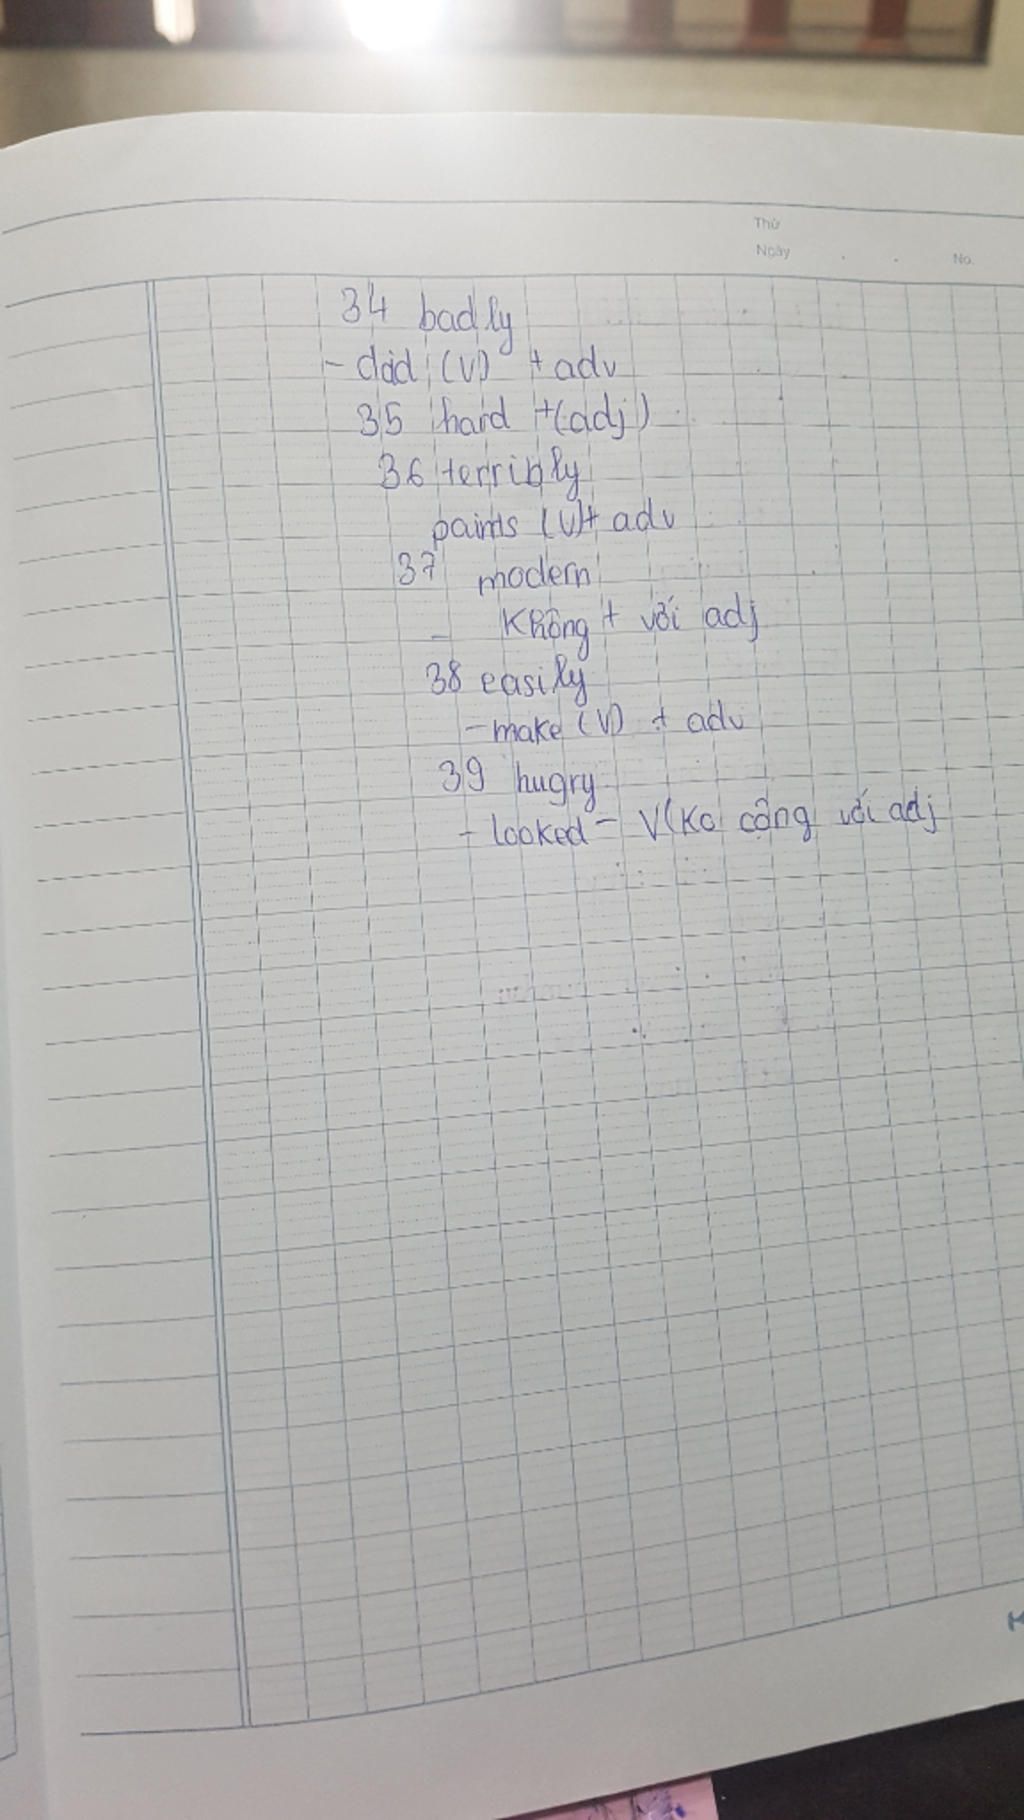 Thứ
Ngày . . No.
34 badly
- did (V) + adv
35 hard +(adj)
36 terribly
paints (V)+ adv
37 modern
- Không + với adj
38 easily
- make (V) + adv
39 hugry
- looked - V(Ko cộng với adj